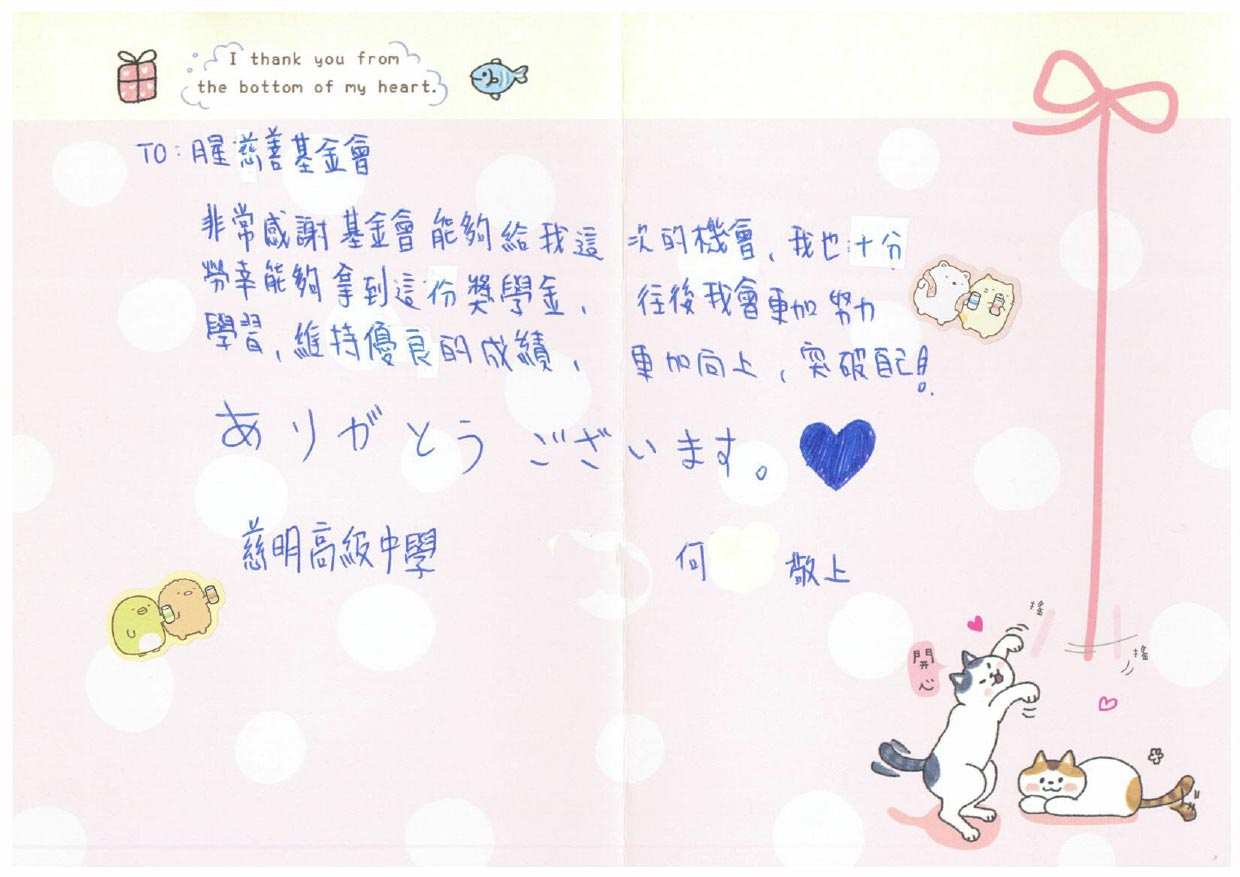 I thank you from
the bottom of my heart.
TO：月星慈善基金會
非常感謝基金會能夠給我這次的機會、我也十分
勞幸能夠拿到這份獎學金，往後我會更加努力
學習、維持優良的成績，更加向上，突破自己！
ありがとうございます。
慈明高級中學 何 敬上
搖
搖
開心